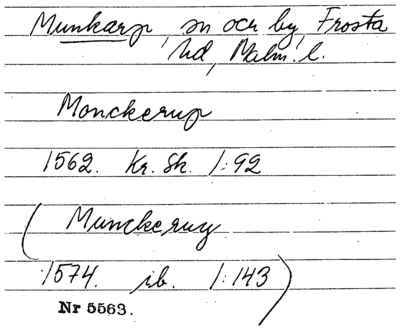 Munkarp, sn och by, Frosta
hd, Malm. l.
Monckerup
1562. Kr. Sk. 1:92
(Munckerup
1574. ib. 1:143)
Nr 5563.